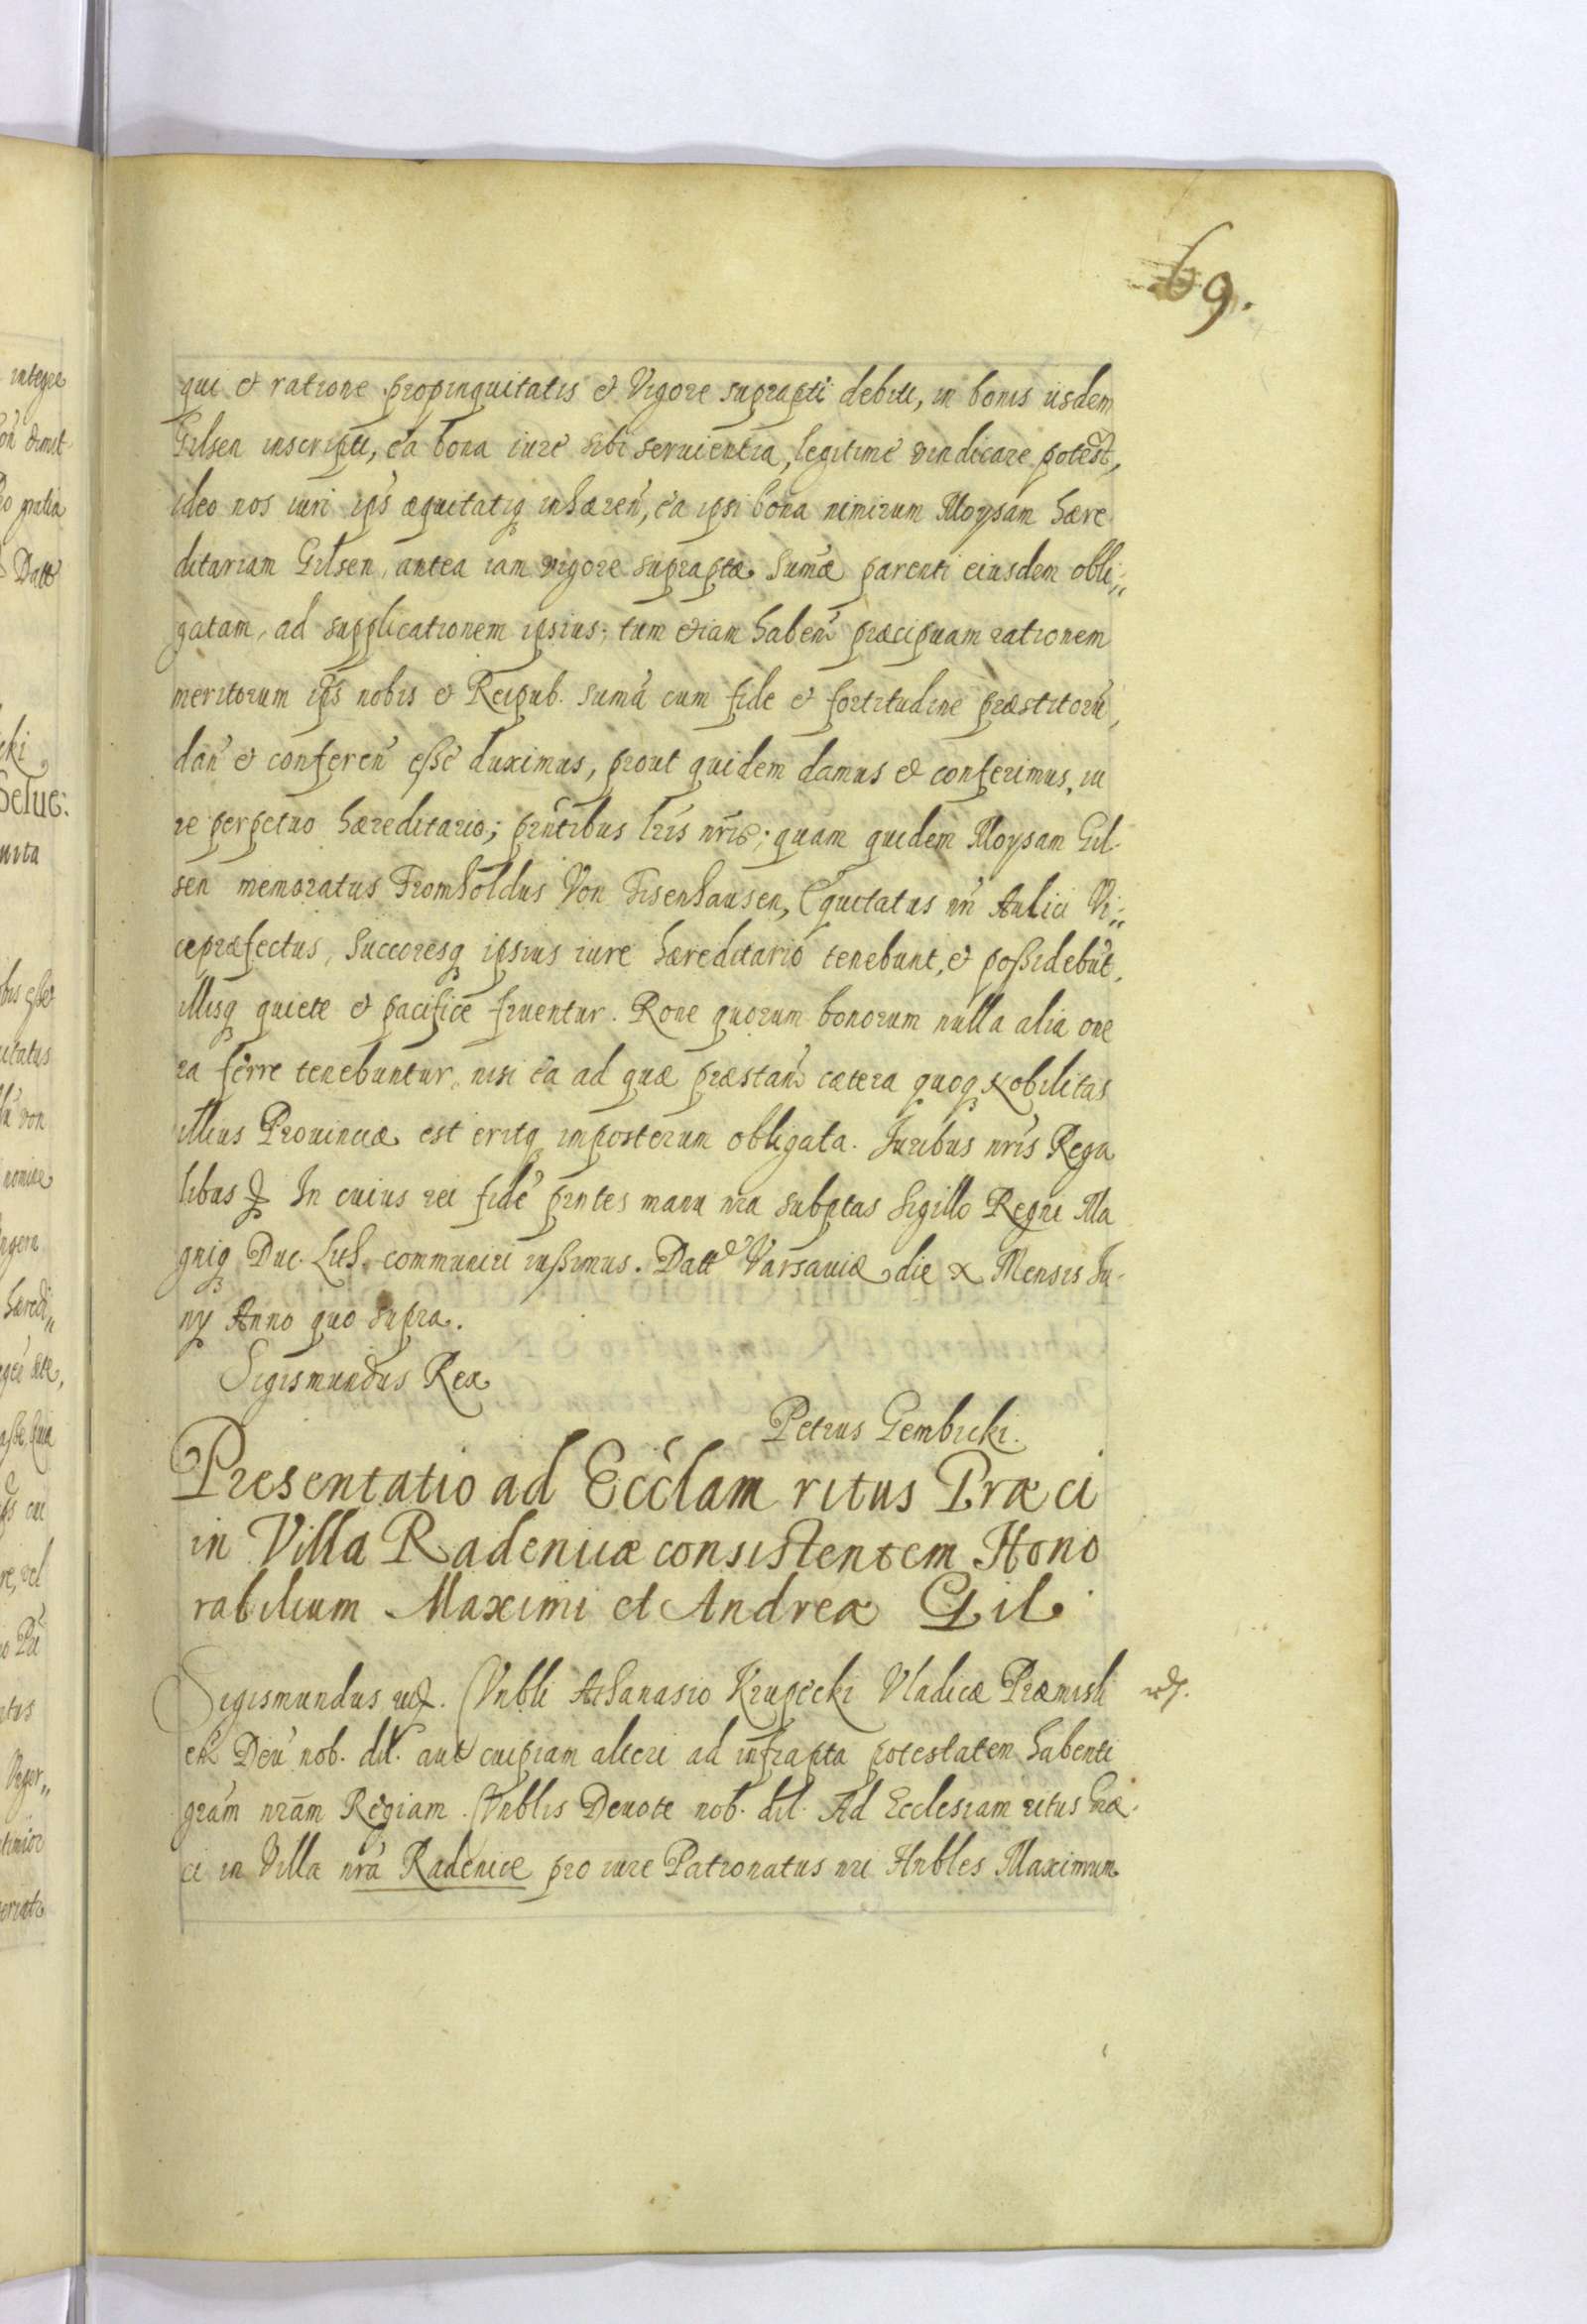 69.
qui et ratione propinquitatis et Vigore suprapti debiti, in bonis iisdem
Gilsen inscripti, ea bona iure sibi seruientia, legitime vindicare potest,
ideo nos iuri ips æquitatiq inhæren, ea ipsi bona nimirum Moysam hære
ditariam Gilsen, antea iam vigore supraptæ Sumæ parenti eiusdem obli„
gatam, ad supplicationem ipsius; tum etiam haben præcipuam rationem
meritorum ips nobis et Reipub. suma cum fide et fortitudine præstitoru,
dan et conferen esse duximus, prout quidem damus et conferimus, iu
re perpetuo hæreditario; pntibus lris nris; quam quidem Moysam Gil
sen memoratus Fromholdus Von Tisenhausen, Equitatus nri Aulici Vi„
cepræfectus, Succoresq ipsius iure hæreditario tenebunt, et possidebut,
illisq quiete et pacifice fruentur. Rone quorum bonorum nulla alia one
ra ferre tenebuntur, nisi ea ad quæ præstan cætera quoq Nobilitas
illius Prouinciæ est eritq imposterum obligata. Juribus nris Rega
libus In cuius rei fide pntes manu nra subptas Sigillo Regni Ma
gniq Duc. Lith. communiri iussimus. Datt Varsauiæ die X Mensis Ju
ny Anno quo supra.
Sigismundus Rex
Petrus Gembicki.
Presentatio ad Ecclam ritus Græci
in Villa Radenicæ consistentem Hono
rabilium Maximi et Andreæ Gil
Sigismundus Vnbli Athanasio Krupecki Vladicæ Præmisli
en Deu nob. dil. aut cuipiam alteri ad infrapta potestatem habenti
gram nram Regiam. Vnblis Deuote nob. dil. Ad Ecclesiam ritus Græ
ci in Villa nra Radenice pro iure Patronatus nri Hnbles Maximum